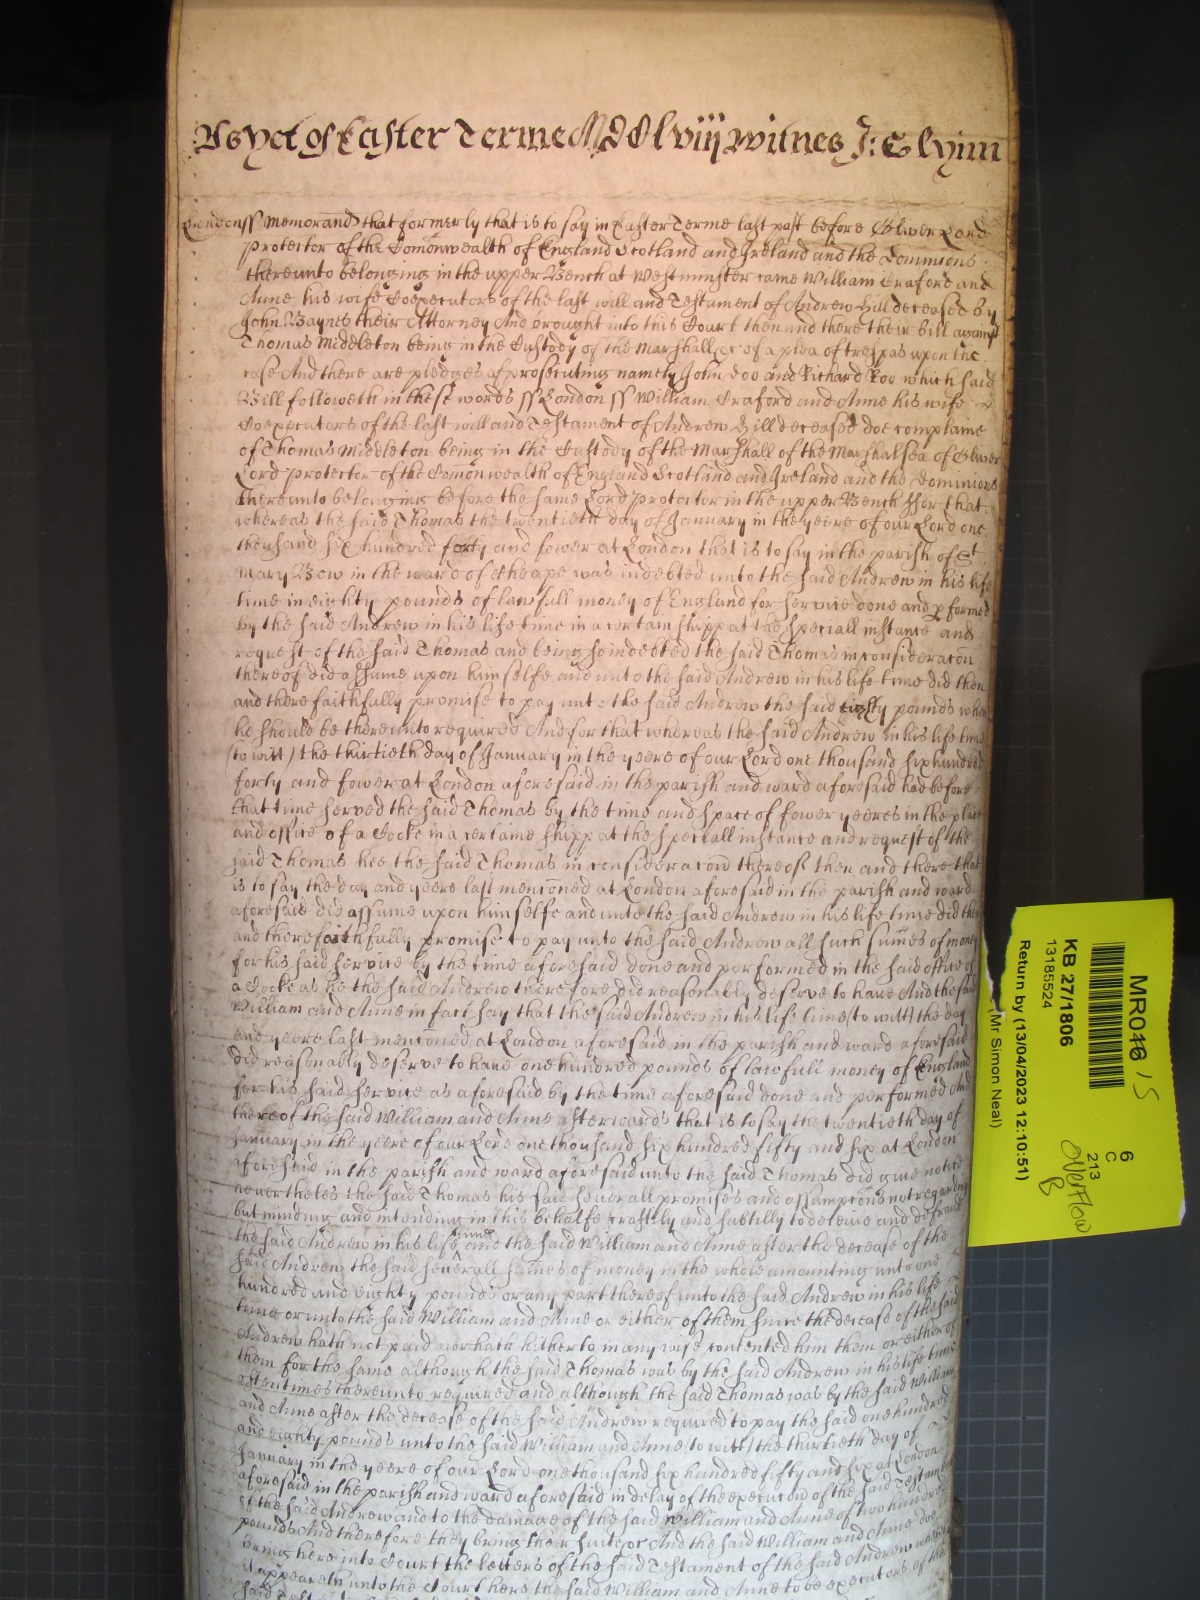 yet of Easter Terme MDClviij witnes J: Glynn
London ss Memorand that formerly that is to say in Easter Terme last past before Oliver Lord
Protector of the Comonwealth of England Scotland and Ireland and the Dominions
thereunto belonging in the upper Bench at Westminster came William Craford and
Anne his wife Coexecutors of the last will and Testament of Andrew Hill deceased by
John Baynes their Attorney And brought into this Court then and there their bill against
Thomas Middleton being in the Custody of the Marshall &c of a plea of trespas upon the
case And there are pledges of prosecuting namely John Doo and Richard Roo which said
Bill followeth in these words ss London ss William Craford and Anne his wife
Coexecutors of the last will and Testament of Andrew Hill deceased doe complaine
of Thomas Middleton being in the Custody of the Marshall of the Marshalsea of Oliver
Lord Protector of the Comonwealth of England Scotland and Ireland and the Dominions
thereunto belonging before the same Lord Protector in the upper Bench ffor that
whereas the said Thomas the twentieth day of January in the yeere of our Lord one
thousand six hundred forty and fower at London that is to say in the parish of St
Mary Bow in the ward of Cheape was indebted unto the said Andrew in his life
time in eighty pounds of lawfull money of England for service done and pformed
by the said Andrew in his life time in a certain shipp at the speciall instance and
request of the said Thomas and being so indebted the said Thomas in consideracon
thereof did assume upon himselfe and unto the said Andrew in his life time did then
and there faithfully promise to pay unto the said Andrew the said eighty pounds when
he should be thereunto required And for that whereas the said Andrew in his life time
(to witt) the thirtieth day of January in the yeere of our Lord one thousand six hundred
forty and fower at London aforesaid in the parish and ward aforesaid had before
that time served the said Thomas by the time and space of fower yeeres in the place
and office of a Cooke in a certaine shipp at the speciall instance and request of the
said Thomas hee the said Thomas in consideracon thereof then and there that
is to say the day and yeere last mencõned at London aforesaid in the parish and ward
aforesaid did assume upon himselfe and unto the said Andrew in his life time did then
and there faithfully promise to pay unto the said Andrew all such sumes of money
for his said service by the time aforesaid done and performed in the said office of
a Cooke as he the said Andrew therefore did reasonably deserve to have And the said
William and Anne in fact say that the said Andrew in his life time (to witt) the day
and yeere last mencõned at London aforesaid in the parish and ward aforesaid
did reasonably deserve to have one hundred pounds of lawfull money of England
for his said service as aforesaid by the time aforesaid done and performed And
thereof the said William and Anne afterwards that is to say the twentieth day of
January in the yeere of our Lord one thousand six hundred fifty and six at London
aforesaid in the parish and ward aforesaid unto the said Thomas did give notice
nevertheles the said Thomas his said severall promises and assumptions not regarding
but minding and intending in this behalfe craftily and subtilly to deceive and defraud
the said Andrew in his life time and the said William and Anne after the decease of the
said Andrew the said severall sumes of money in the whole amounting unto one
hundred and eighty pounds or any part thereof unto the said Andrew in his life
time or unto the said William and Anne or either of them since the decease of the said
Andrew hath not paid nor hath hitherto in any wise contented him them or either of
them for the same although the said Thomas was by the said Andrew in his life time
oftentimes thereunto required and although the said Thomas was by the said William
and Anne after the decease of the said Andrew required to pay the said one hundred
and eighty pounds unto the said William and Anne (to witt) the thirtieth day of
January in the yeere of our Lord one thousand six hundred fifty and six at London
aforesaid in the parish and ward aforesaid in delay of the execucon of the said Testament
of the said Andrew and to the damage of the said William and Anne of two hundred
pounds And therefore they bring their suite &c And the said William and Anne doe
bring here into Court the letters of the said Testament of the said Andrew
it appeareth unto the Court here the said William and Anne to be executors of the
said
MR046 15
KB 27/1806
13185524
Return by (13/04/2023 12:10:51)
(Mr Simon Neal)
6
C
213
overflow
B